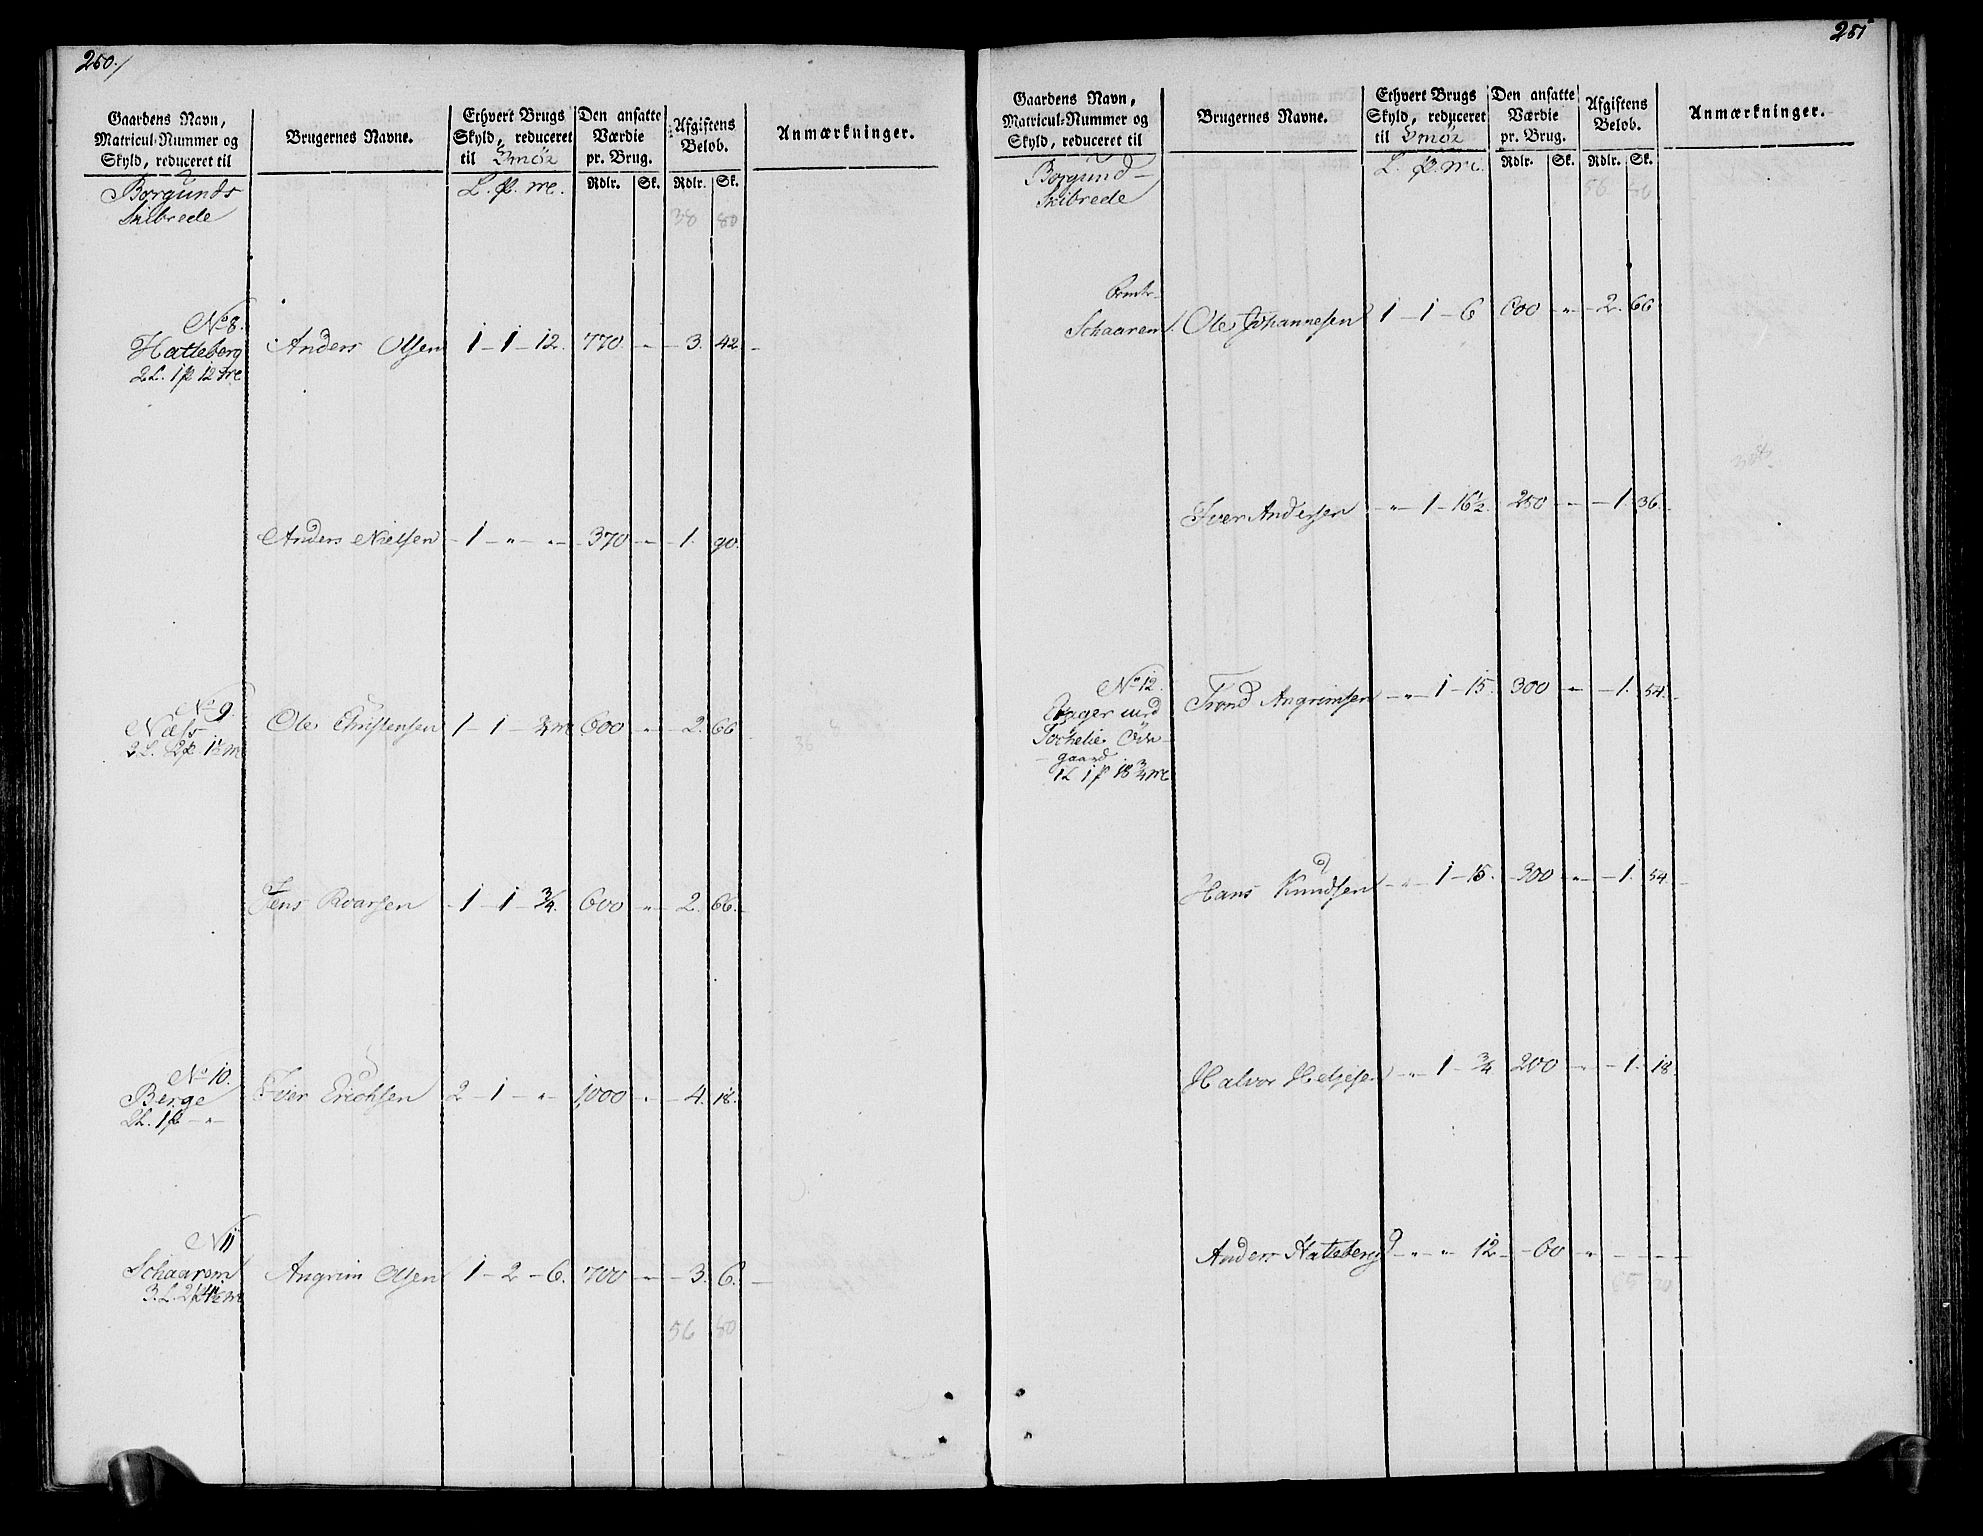 250./
Gaardens Navn, Matricul-Nummer og Skyld, reduceret til
Brugernes Navne.
Ethvert Brugs Skyld, reduceret til Smör
Den ansatte Værdie pr. Brug.
Afgiftens Beløb.
Anmærkninger.
L. p. mc. Rdlr. Sk. Rdlr. Sk.
Borgunds
Skibrede
38 80
No 8.
Hatleberg Anders Olsen 1 - 1 - 12. 770 " - 3. 42 -
2 L. 1 p 12 mc
Anders Nielsen - 1 - " - " - 370 " - 1. 90.
No 9.
Næss Ole Christensen 1 - 1 - 3/4 mc 600 " - 2. 66
2 L. 2 p 1½ m
Jens Roarsen - 1 - 1 - 3/4. 600 " - 2. 66.
No 10.
Berge Iver Erichsen 2 - 1 - " - 1,000 " - 4. 18.
2 L. 1 p - " -
N 11
Schaarem Angrim Olsen 1 - 2 - 6. 700 " - 3. 6. -
3. L. 2 p mc
56 80
251
Gaardens Navn, Matricul-Nummer og Skyld, reduceret til
Brugernes Navne.
Ethvert Brugs Skyld, reduceret til Smör
Den ansatte Værdie pr. Brug.
Afgiftens Beløb.
Anmærkninger.
L. p. mc. Rdlr. Sk. Rdlr. Sk.
Borgund
Skibrede
56 80
Schaarem Ole Johannesen 1 - 1 - 6 600 " - 2. 66
Iver Andersen - " - 1 - 16½. 250 " - 1. 36 -
No 12.
Trond Angrimsen - " - 1 - 15. 300 " - 1. 54. -
gaard
1 L 1 p 18 3/4 mc
Hans Knudsen - " - 1 - 15. 300 " - 1. 54 -
Halvor Helgesen - " - 1 - 3/4 200 " - 1. 18
Anders Hatleberg - " - " 12 - 60 " - - - -